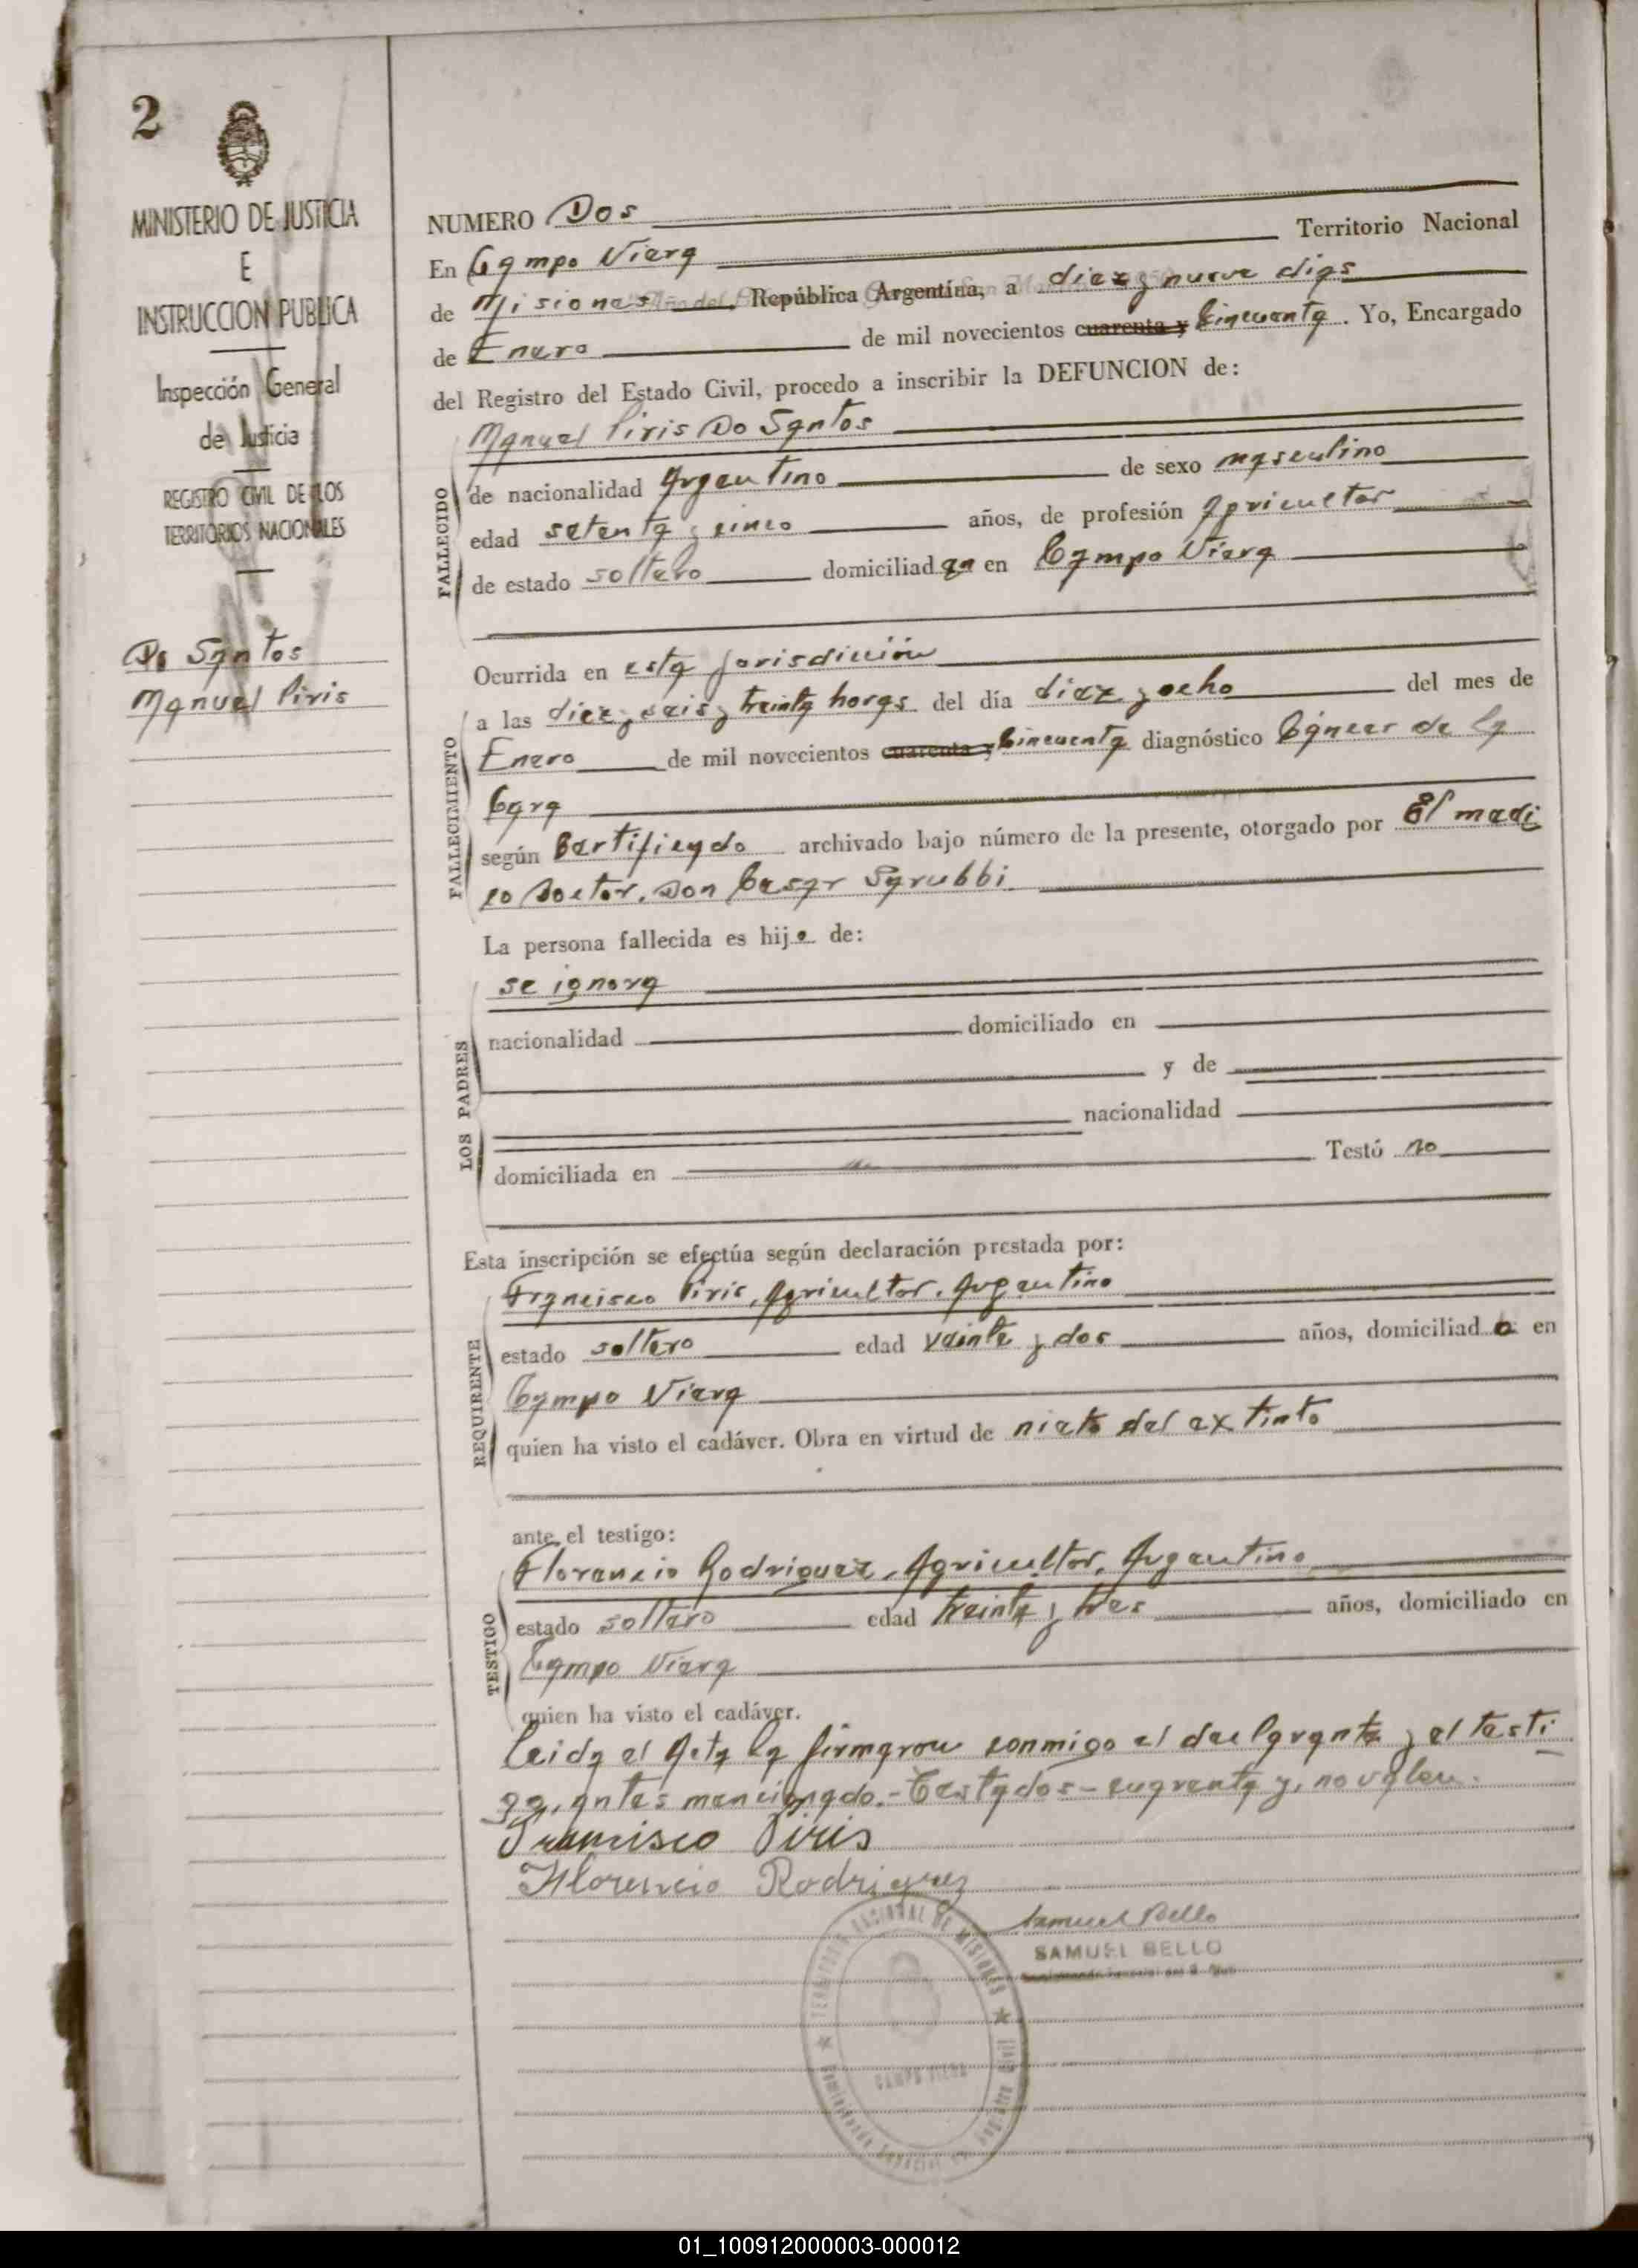 2
MINISTERIO DE JUSTICIA
E
INSTRUCCION PUBLICA
Inspección General
de Justicia
REGISTRO CIVIL DE LOS
TERRITORIOS NACIONALES
Do Santos
Manuel Piris
NUMERO Dos
En Campo Viera Territorio Nacional
de Misiones República Argentina, a diez y nueve dias
de Enero de mil novecientos cuarenta y Cincuenta. Yo, Encargado
del Registro del Estado Civil, procedo a inscribir la DEFUNCION de:
FALLECIDO
Manuel Piris Do Santos
de nacionalidad Argentino de sexo masculino
edad setenta y cinco años, de profesión Agricultor
de estado soltero domiciliad en Campo Viera
FALLECIMIENTO
Ocurrida en esta jurisdicción
a las diez y seis y treinta horas del día diez y ocho del mes de
Enero de mil novecientos cuarenta y Cincuenta diagnóstico Cáncer de la
Cara
según Certificado archivado bajo número de la presente, otorgado por El medi
co Doctor, Don Cesar Sarubbi
La persona fallecida es hijo de:
LOS PADRES
se ignora
nacionalidad domiciliado en
y de
nacionalidad
domiciliada en Testó no
Esta inscripción se efectúa según declaración prestada por:
REQUIRENTE
Francisco Piris, Agricultor, Argentino
estado soltero edad veinte y dos años, domiciliado en
Campo Viera
quien ha visto el cadáver. Obra en virtud de nieto del extinto
ante el testigo:
TESTIGO
Florencio Rodriguez, Agricultor, Argentino
estado soltero edad treinta y tres años, domiciliado en
Campo Viera
quien ha visto el cadáver.
Leida el Acta la firmaron conmigo el declarante y el testi
go, antes mencionado.- Testados - cuarenta y, no valen.
Francisco Piris
Florencio Rodriguez
Samuel Bello
SAMUEL BELLO
TERRITORIO NACIONAL DE MISIONES
CAMPO VIERA
01_100912000003-000012